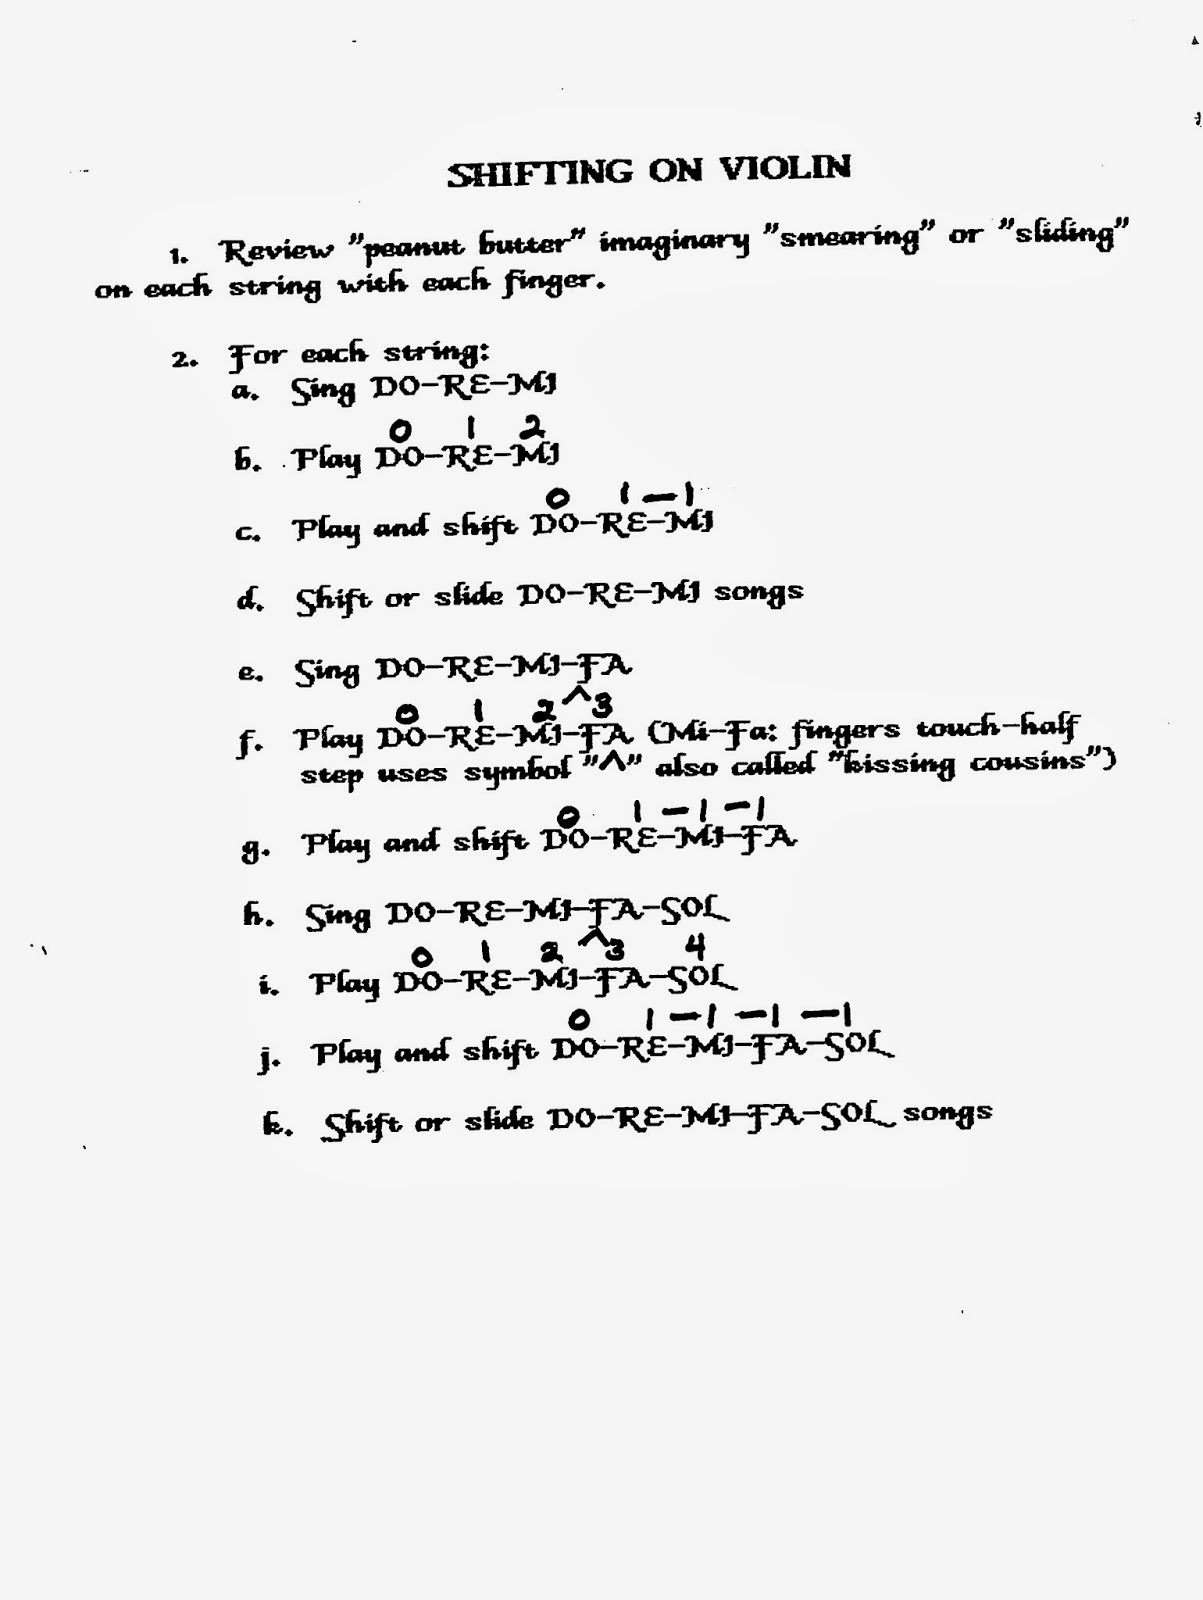 SHIFTING ON VIOLIN
1. Review "peanut butter" imaginary "smearing" or "sliding"
on each string with each finger.
2. For each string:
a. Sing DO-RE-MI
0 1 2
b. Play DO-RE-MI
0 1 — 1
c. Play and shift DO-RE-MI
d. Shift or slide DO-RE-MI songs
e. Sing DO-RE-MI-FA
0 1 2 ^ 3
f. Play DO-RE-MI-FA (Mi-Fa: fingers touch-half
step uses symbol "^" also called "kissing cousins")
0 1 — 1 — 1
g. Play and shift DO-RE-MI-FA
h. Sing DO-RE-MI-FA-SOL
0 1 2 ^ 3 4
i. Play DO-RE-MI-FA-SOL
0 1 — 1 — 1 — 1
j. Play and shift DO-RE-MI-FA-SOL
k. Shift or slide DO-RE-MI-FA-SOL songs